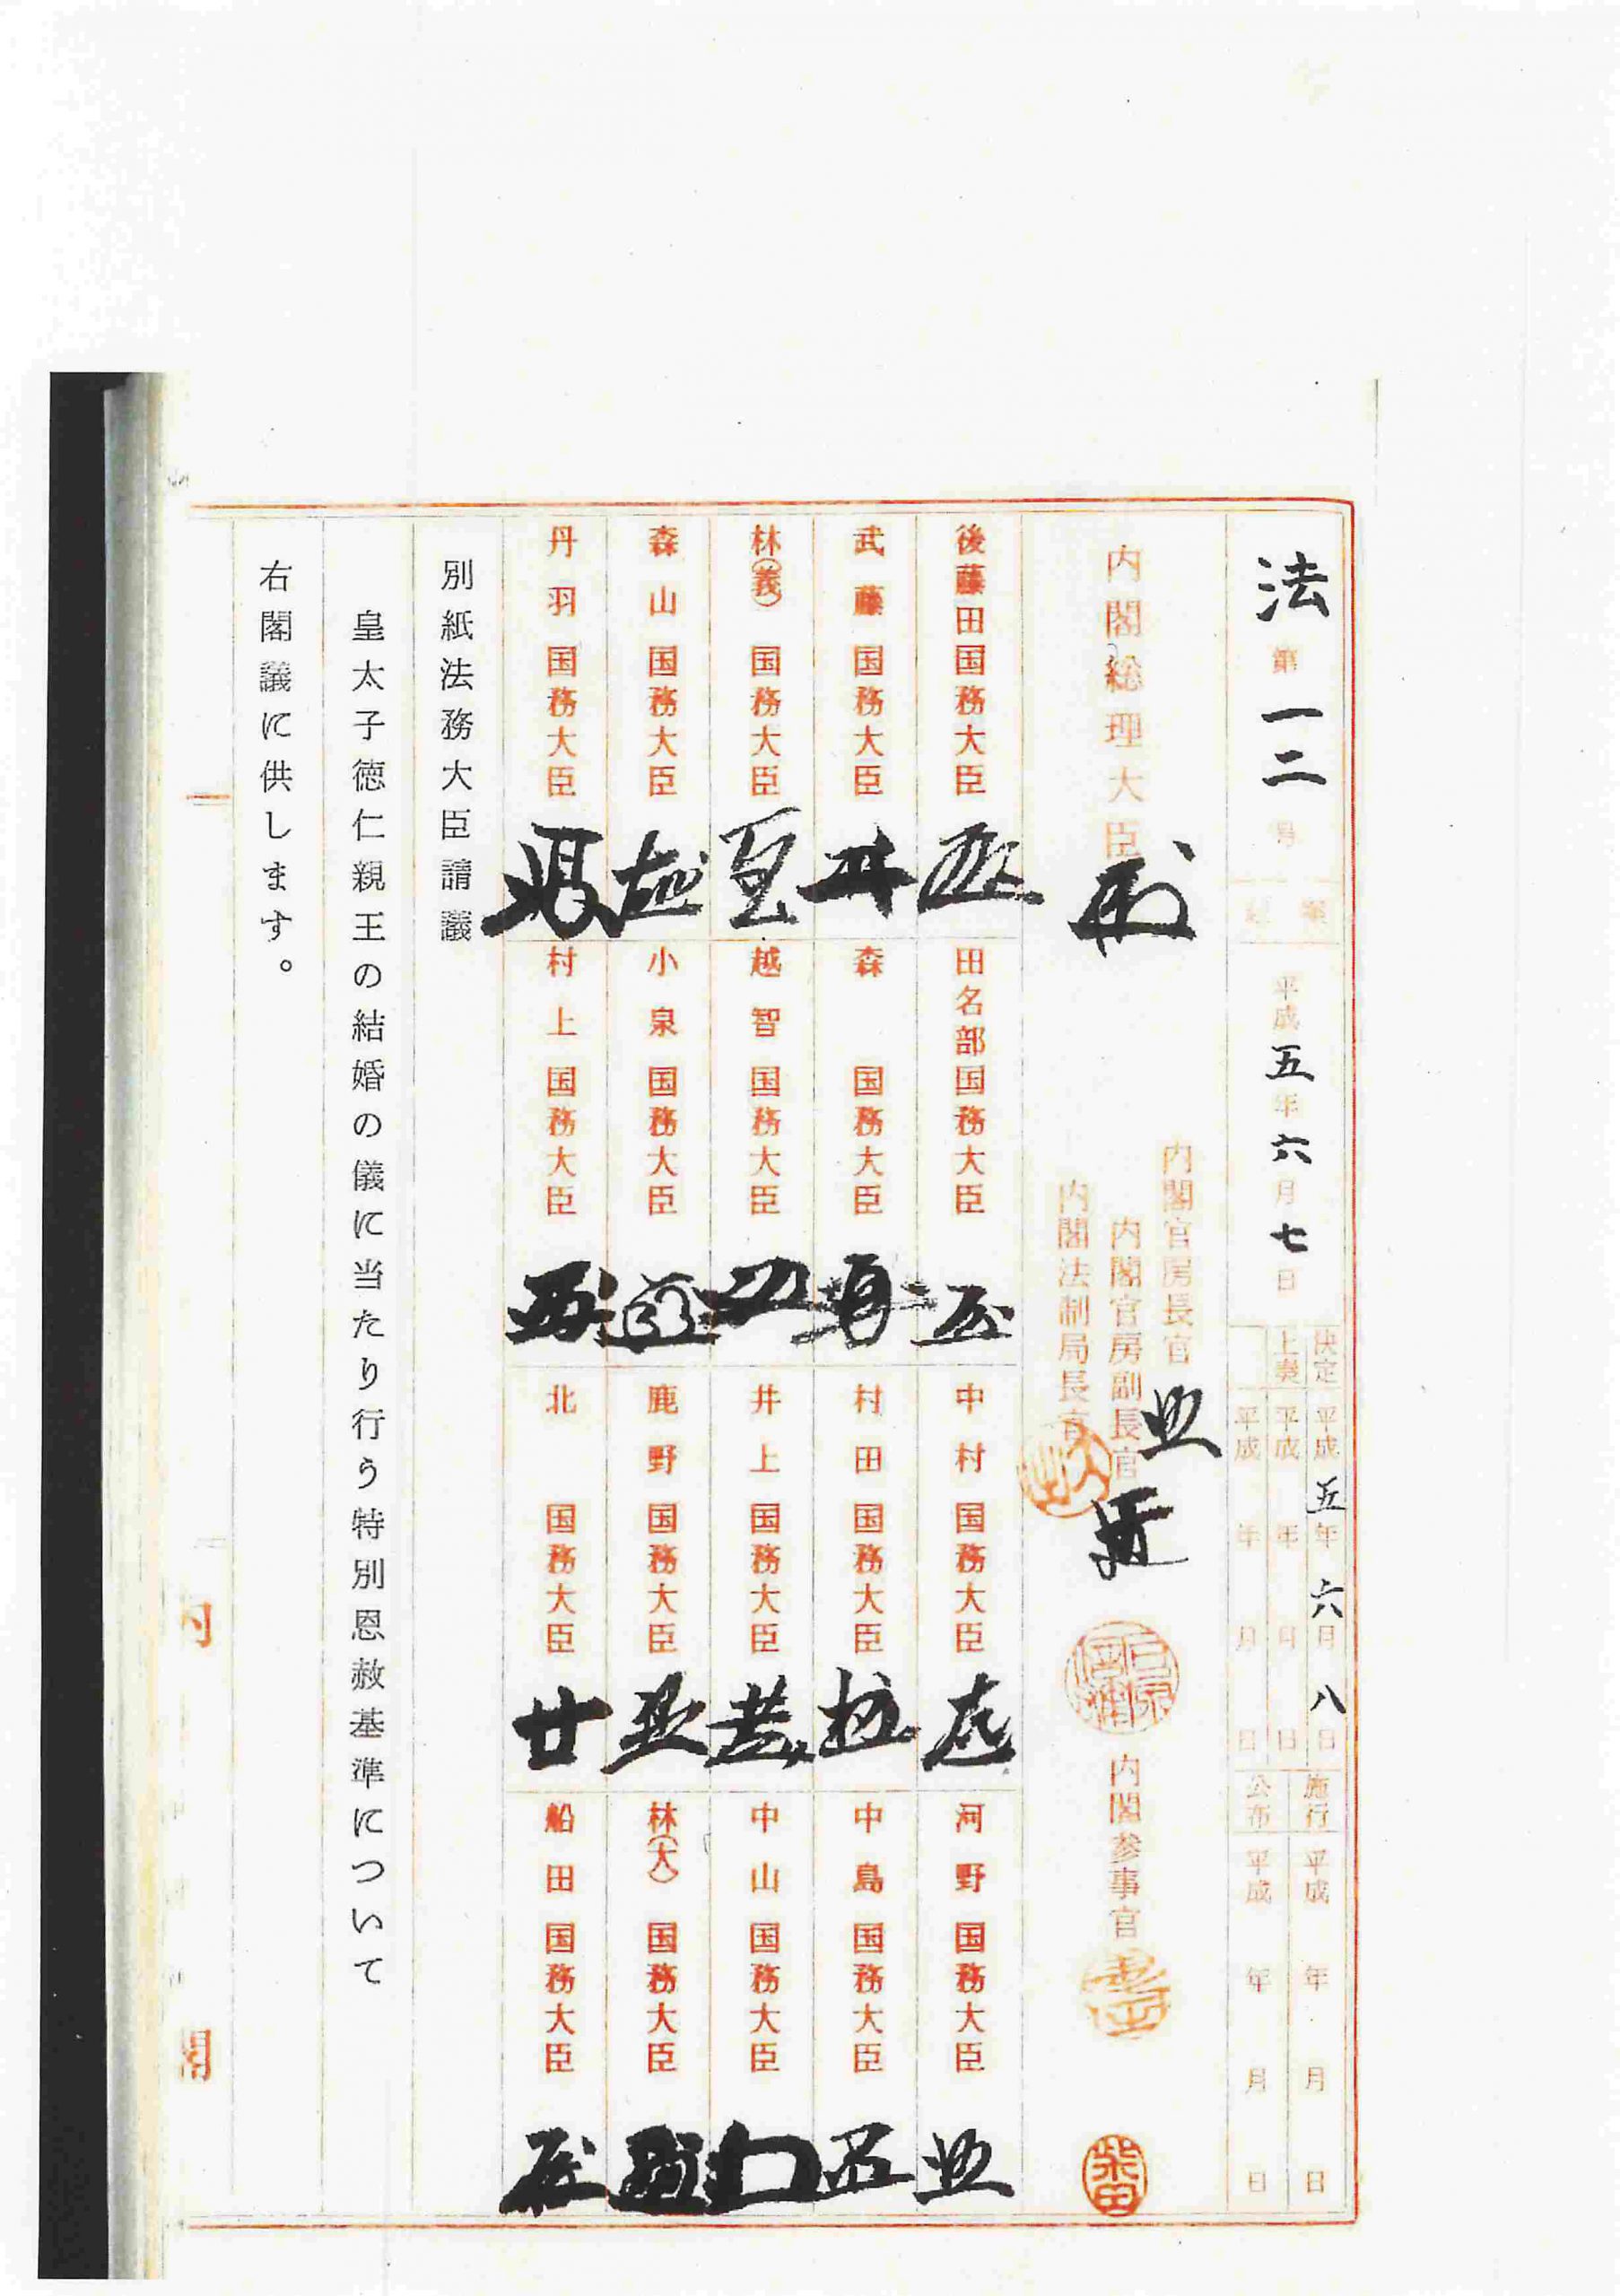 法第一二号
起案
平成五年六月七日
決定 平成五年六月八日
上奏 平成 年 月 日
平成 年 月 日
施行 平成 年 月 日
公布 平成 年 月 日
内閣総理大臣
内閣官房長官
内閣官房副長官
内閣法制局長官
内閣参事官
柴田
後藤田国務大臣
田名部国務大臣
中村国務大臣
河野国務大臣
武藤国務大臣
森国務大臣
村田国務大臣
中島国務大臣
林(義)国務大臣
越智国務大臣
井上国務大臣
中山国務大臣
森山国務大臣
小泉国務大臣
鹿野国務大臣
林(大)国務大臣
丹羽国務大臣
村上国務大臣
北国務大臣
船田国務大臣
別紙法務大臣請議
皇太子徳仁親王の結婚の儀に当たり行う特別恩赦基準について
右閣議に供します。
内閣